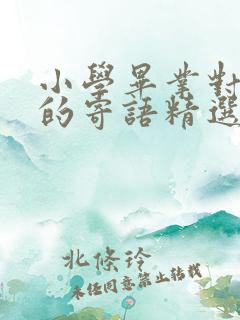 小學畢業對
的寄語精選
北條玲
未經同意禁止轉載